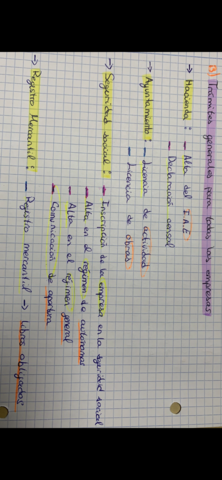 B) Trámites generales para todas las empresas:
→ Hacienda: - Alta del I.A.E
- Declaración censal
→ Ayuntamiento: - Licencia de actividad
- Licencia de obras
→ Seguridad social: - Inscripción de la empresa en la seguridad social
- Alta en el régimen de autónomos
- Alta en el régimen general
- Comunicación de apertura
→ Registro Mercantil: - Registro mercantil → libros obligados